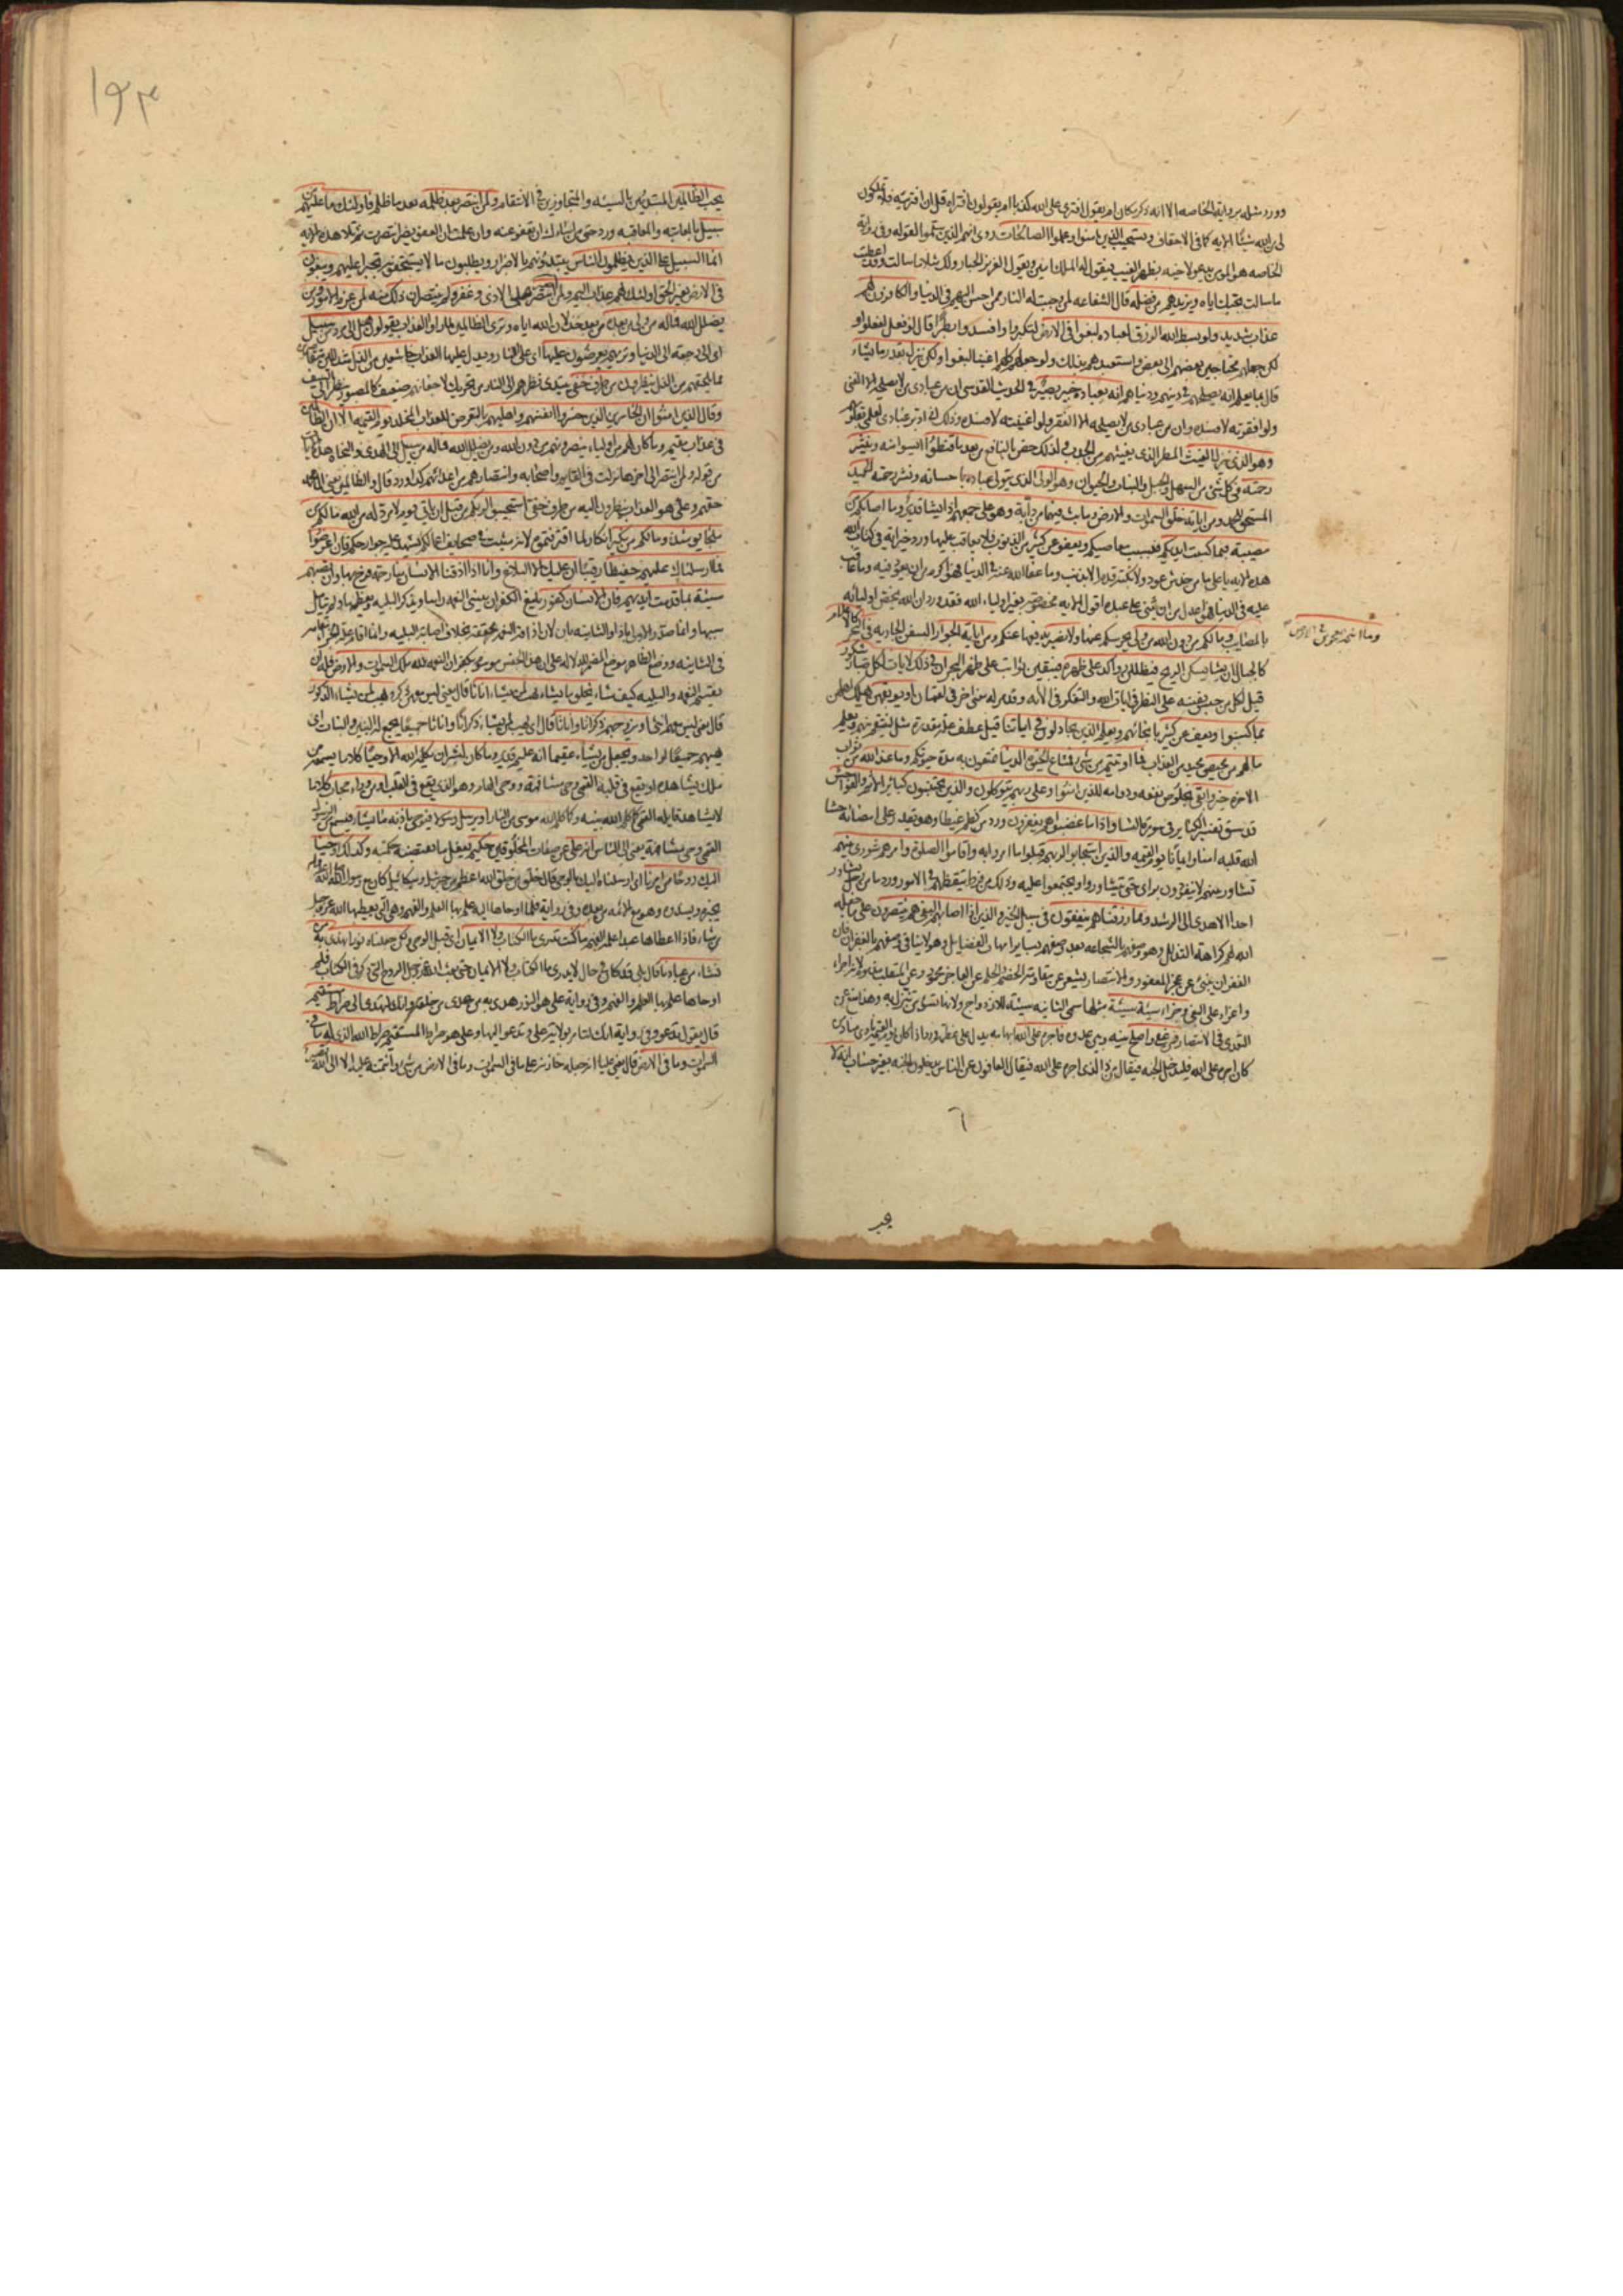 وورد مثله برواية الخاصه الا انه ذكر مكان ام يقول افترى على الله كذبا ام يقولون افتراه قل ان افتريته فلا تملكون
لى من الله شيئا الايه كما فى الاحقاف ويستجيب الذين امنوا وعملوا الصالحات روى انهم الذين سلموا لقوله وفى رواية
الخاصه هو المؤمن يدعو لاخيه بظهر الغيب فيقول له الملك امين ويقول العزيز الجبار ولك مثلا ما سالت وقد اعطيت
ما سالت بحبك اياه ويزيدهم من فضله قال الشفاعه لمن وجبت له النار ممن احسن اليهم فى الدنيا والكافرون لهم
عذاب شديد ولو بسط الله الرزق لعباده لبغوا فى الارض لتكبروا وافسدوا بطرا قال لو فعل لفعلوا و
لكن جعلهم محتاجين بعضهم الى بعض واستعبدهم بذلك ولو جعلهم كلهم اغنيا لبغوا ولكن ينزل بقدر ما يشاء
قال بما يعلم انه يصلحهم فى دينهم ودنياهم انه بعباده خبير بصير فى الحديث القدسى ان من عبادى من لا يصلحه الا الغنى
ولو افقرته لافسده وان من عبادى من لا يصلحه الا الفقر ولو اغنيته لافسده وذلك انى ادبر عبادى لعلمى بقلوبهم
وهو الذى ينزل الغيث المطر الذى يغيثهم من الجدب ولذلك خص بالنافع من بعد ما قنطوا ايسوا منه وينشر
رحمته فى كل شئ من السهل والجبل والنبات والحيوان وهو الولى الذى يتولى عباده باحسانه ونشر رحمته الحميد
المستحق للحمد ومن اياته خلق السموات والارض وما بث فيهما من دابة وهو على جمعهم اذا يشا قدير وما اصابكم من
مصيبة فبما كسبت ايديكم فبسبب معاصيكم ويعفو عن كثير من الذنوب فلا يعاقب عليها ورد خير اية فى كتاب الله
هذه الايه يا على ما من خدش عود ولا نكبة قدم الا بذنب وما عفا الله عنه فى الدنيا فهو اكرم من ان يعود فيه وما عاقب
عليه فى الدنيا فهو اعدل من ان يثنى على عبده اقول الايه مخصوصه بغير اولياء الله فقد ورد ان الله يخص اوليائه
وما انتم بمعجزين فى الارض
بالمصايب وما لكم من دون الله من ولى يحرسكم عنها ولا نصير يدفعها عنكم ومن اياته الجوار السفن الجاريه فى البحر كالاعلام
كالجبال ان يشا يسكن الريح فيظللن رواكد على ظهره فيبقين ثوابت على ظهر البحر ان فى ذلك لايات لكل صبار شكور
قيل لكل من حبس نفسه على النظر فى ايات الله والتفكر فى الائه
بما كسبوا ويعف عن كثير بانجائهم ويعلم الذين يجادلون فى اياتنا قيل عطف على علة مقدره مثل لينتقم منهم ويعلم
ما لهم من محيص محيد من العذاب فما اوتيتم من شئ فمتاع الحيوة الدنيا تمتعون به مدة حيوتكم وما عند الله من ثواب
الاخره خير وابقى لخلوص نفعه ودوامه للذين امنوا وعلى ربهم يتوكلون والذين يجتنبون كبائر الاثم والفواحش
قد سبق تفسير الكبائر فى سورة النسا واذا ما غضبوا هم يغفرون ورد من كظم غيظا وهو يقدر على امضائه حشا
الله قلبه امنا وايمانا يوم القيمه والذين استجابوا لربهم قبلوا ما امروا به واقاموا الصلوة وامرهم شورى بينهم
تشاور بينهم لا ينفردون براى حتى يتشاوروا ويجتمعوا عليه وذلك من فرط تيقظهم فى الامور ورد ما من رجل يشاور
احدا الا هدى الى الرشد ومما رزقناهم ينفقون فى سبيل الخير والذين اذا اصابهم البغى هم ينتصرون على ما جعله
الله لهم كراهة التذلل وهو وصفهم بالشجاعه بعد وصفهم بسائر امهات الفضايل وهو لا ينافى وصفهم بالغفران فان
الغفران ينبئ عن عجز المغفور والانتصار يشعر عن مقاومة الخصم والحلم عن العاجز محمود وعن المتغلب مذموم لانه اجراء
واغراء على البغى وجزاء سيئة سيئة مثلها سمى الثانيه سيئة للازدواج ولانها تسوء من تنزل به وهذا منع عن
التعدى فى الانتصار فمن عفى واصلح بينه وبين عدوه فاجره على الله ورد اذا كان يوم القيمه نادى مناد من
كان اجره على الله فليدخل الجنه فيقال من ذا الذى اجره على الله فيقال العافون عن الناس يدخلون الجنه بغير حساب انه لا
١٩٣
يحب الظالمين المبتدئين بالسيئه والمتجاوزين فى الانتقام ولمن انتصر بعد ظلمه بعد ما ظلم فاولئك ما عليهم من
سبيل بالمعاتبه والمعاقبه ورد حق من اساءك ان تعفو عنه وان علمت ان العفو يضر انتصرت ثم تلا هذه الايه
انما السبيل على الذين يظلمون الناس يبتدؤنهم بالاضرار ويطلبون ما لا يستحقونه تجبرا عليهم ويبغون
فى الارض بغير الحق اولئك لهم عذاب اليم ولمن صبر على الاذى وغفر ولم ينتصر ان ذلك منه لمن عزم الامور ومن
يضلل الله فما له من ولى من بعده من بعد خذلان الله اياه وترى الظالمين لما راوا العذاب يقولون هل الى مرد من سبيل
اى الى رجعه الى الدنيا وتريهم يعرضون عليها اى على النار ويدل عليها العذاب خاشعين من الذل متذللين متقاصرين
مما يلحقهم من الذل ينظرون من طرف خفى يبتدى نظرهم الى النار من تحريك لاجفانهم ضعيف كالمصبور ينظر الى السيف
وقال الذين امنوا ان الخاسرين الذين خسروا انفسهم واهليهم بالتعريض للعذاب المخلد يوم القيمه الا ان الظالمين
فى عذاب مقيم وما كان لهم من اولياء ينصرونهم من دون الله ومن يضلل الله فما له من سبيل الى الهدى والنجاة
حقهم وعلى هو العذاب ينظرون اليه من طرف خفى استجيبوا لربكم من قبل ان ياتى يوم لا مرد له من الله ما لكم من
ملجا يومئذ وما لكم من نكير انكار لما اقترفتموه لانه مثبت فى صحايف اعمالكم يشهد عليه جوارحكم فان اعرضوا
فما ارسلناك عليهم حفيظا رقيبا ان عليك الا البلاغ وانا اذا اذقنا الانسان منا رحمة فرح بها وان تصبهم
سيئة بما قدمت ايديهم فان الانسان كفور بليغ الكفران ينسى النعمه راسا ويذكر البليه ويعظمها ولم يتامل
سببها وانما صدر الاولى باذا والثانيه بان لان اذاقة النعم محققه بخلاف اصابة البليه وانما اقام علة الجزاء مقامه
فى الثانيه ووضع الظاهر موضع المضمر للدلاله على ان هذا الجنس موسوم بكفران النعمه لله ملك السموات والارض فله ان
يقسم النعمه والبليه كيف شاء يخلق ما يشاء يهب لمن يشاء اناثا قال يعنى ليس معهن ذكر ويهب لمن يشاء الذكور
قال يعنى ليس معهم انثى او يزوجهم ذكرانا واناثا قال اى يهب لمن يشاء ذكرانا واناثا جميعا يجمع له البنين والبنات اى
يهبهم جميعا لواحد ويجعل من يشاء عقيما انه عليم قدير وما كان لبشر ان يكلمه الله الا وحيا كلاما يسمعه من
ملك يشاهده او يقع فى قلبه القمى وحى مشافهة ووحى الهام وهو الذى يقع فى القلب او من وراء حجاب كلاما
لا يشاهد قايله القمى كما كلم الله نبيه وكما كلم الله موسى من النار او يرسل رسولا فيوحى باذنه ما يشاء فيسمع من الرسول
القمى وحى مشافهة يعنى الى الناس انه على عن صفات المخلوقين حكيم يفعل ما يقتضيه حكمته وكذلك اوحينا
اليك روحا من امرنا اى ارسلناه اليك بالوحى قال خلق من خلق الله اعظم من جبرئيل وميكائيل كان مع رسول الله صلى الله عليه واله
يخبره ويسدده وهو مع الائمه من بعده وفى رواية فلما اوحاها اليه علم بها العلم والفهم وهى التى يعطيها الله عز وجل
من شاء فاذا اعطاها عبدا علمه الفهم ما كنت تدرى ما الكتاب ولا الايمان اى قبل الوحى ولكن جعلناه نورا نهدى به من
نشاء من عبادنا قال بلى قد كان فى حال لا يدرى ما الكتاب ولا الايمان حتى بعث الله عز وجل الروح التى ذكر فى الكتاب فلما
اوحاها علم بها العلم والفهم وفى رواية على هو النور هدى به من هدى من خلقه وانك لتهدى الى صراط مستقيم
قال يقول تدعو وفى رواية انك لتامر بولاية على وتدعو اليها وعلى هو صراط المستقيم صراط الله الذى له ما فى
السموات وما فى الارض قال يعنى عليا انه جعله خازنه على ما فى السموات وما فى الارض من شئ وائتمنه عليه الا الى الله